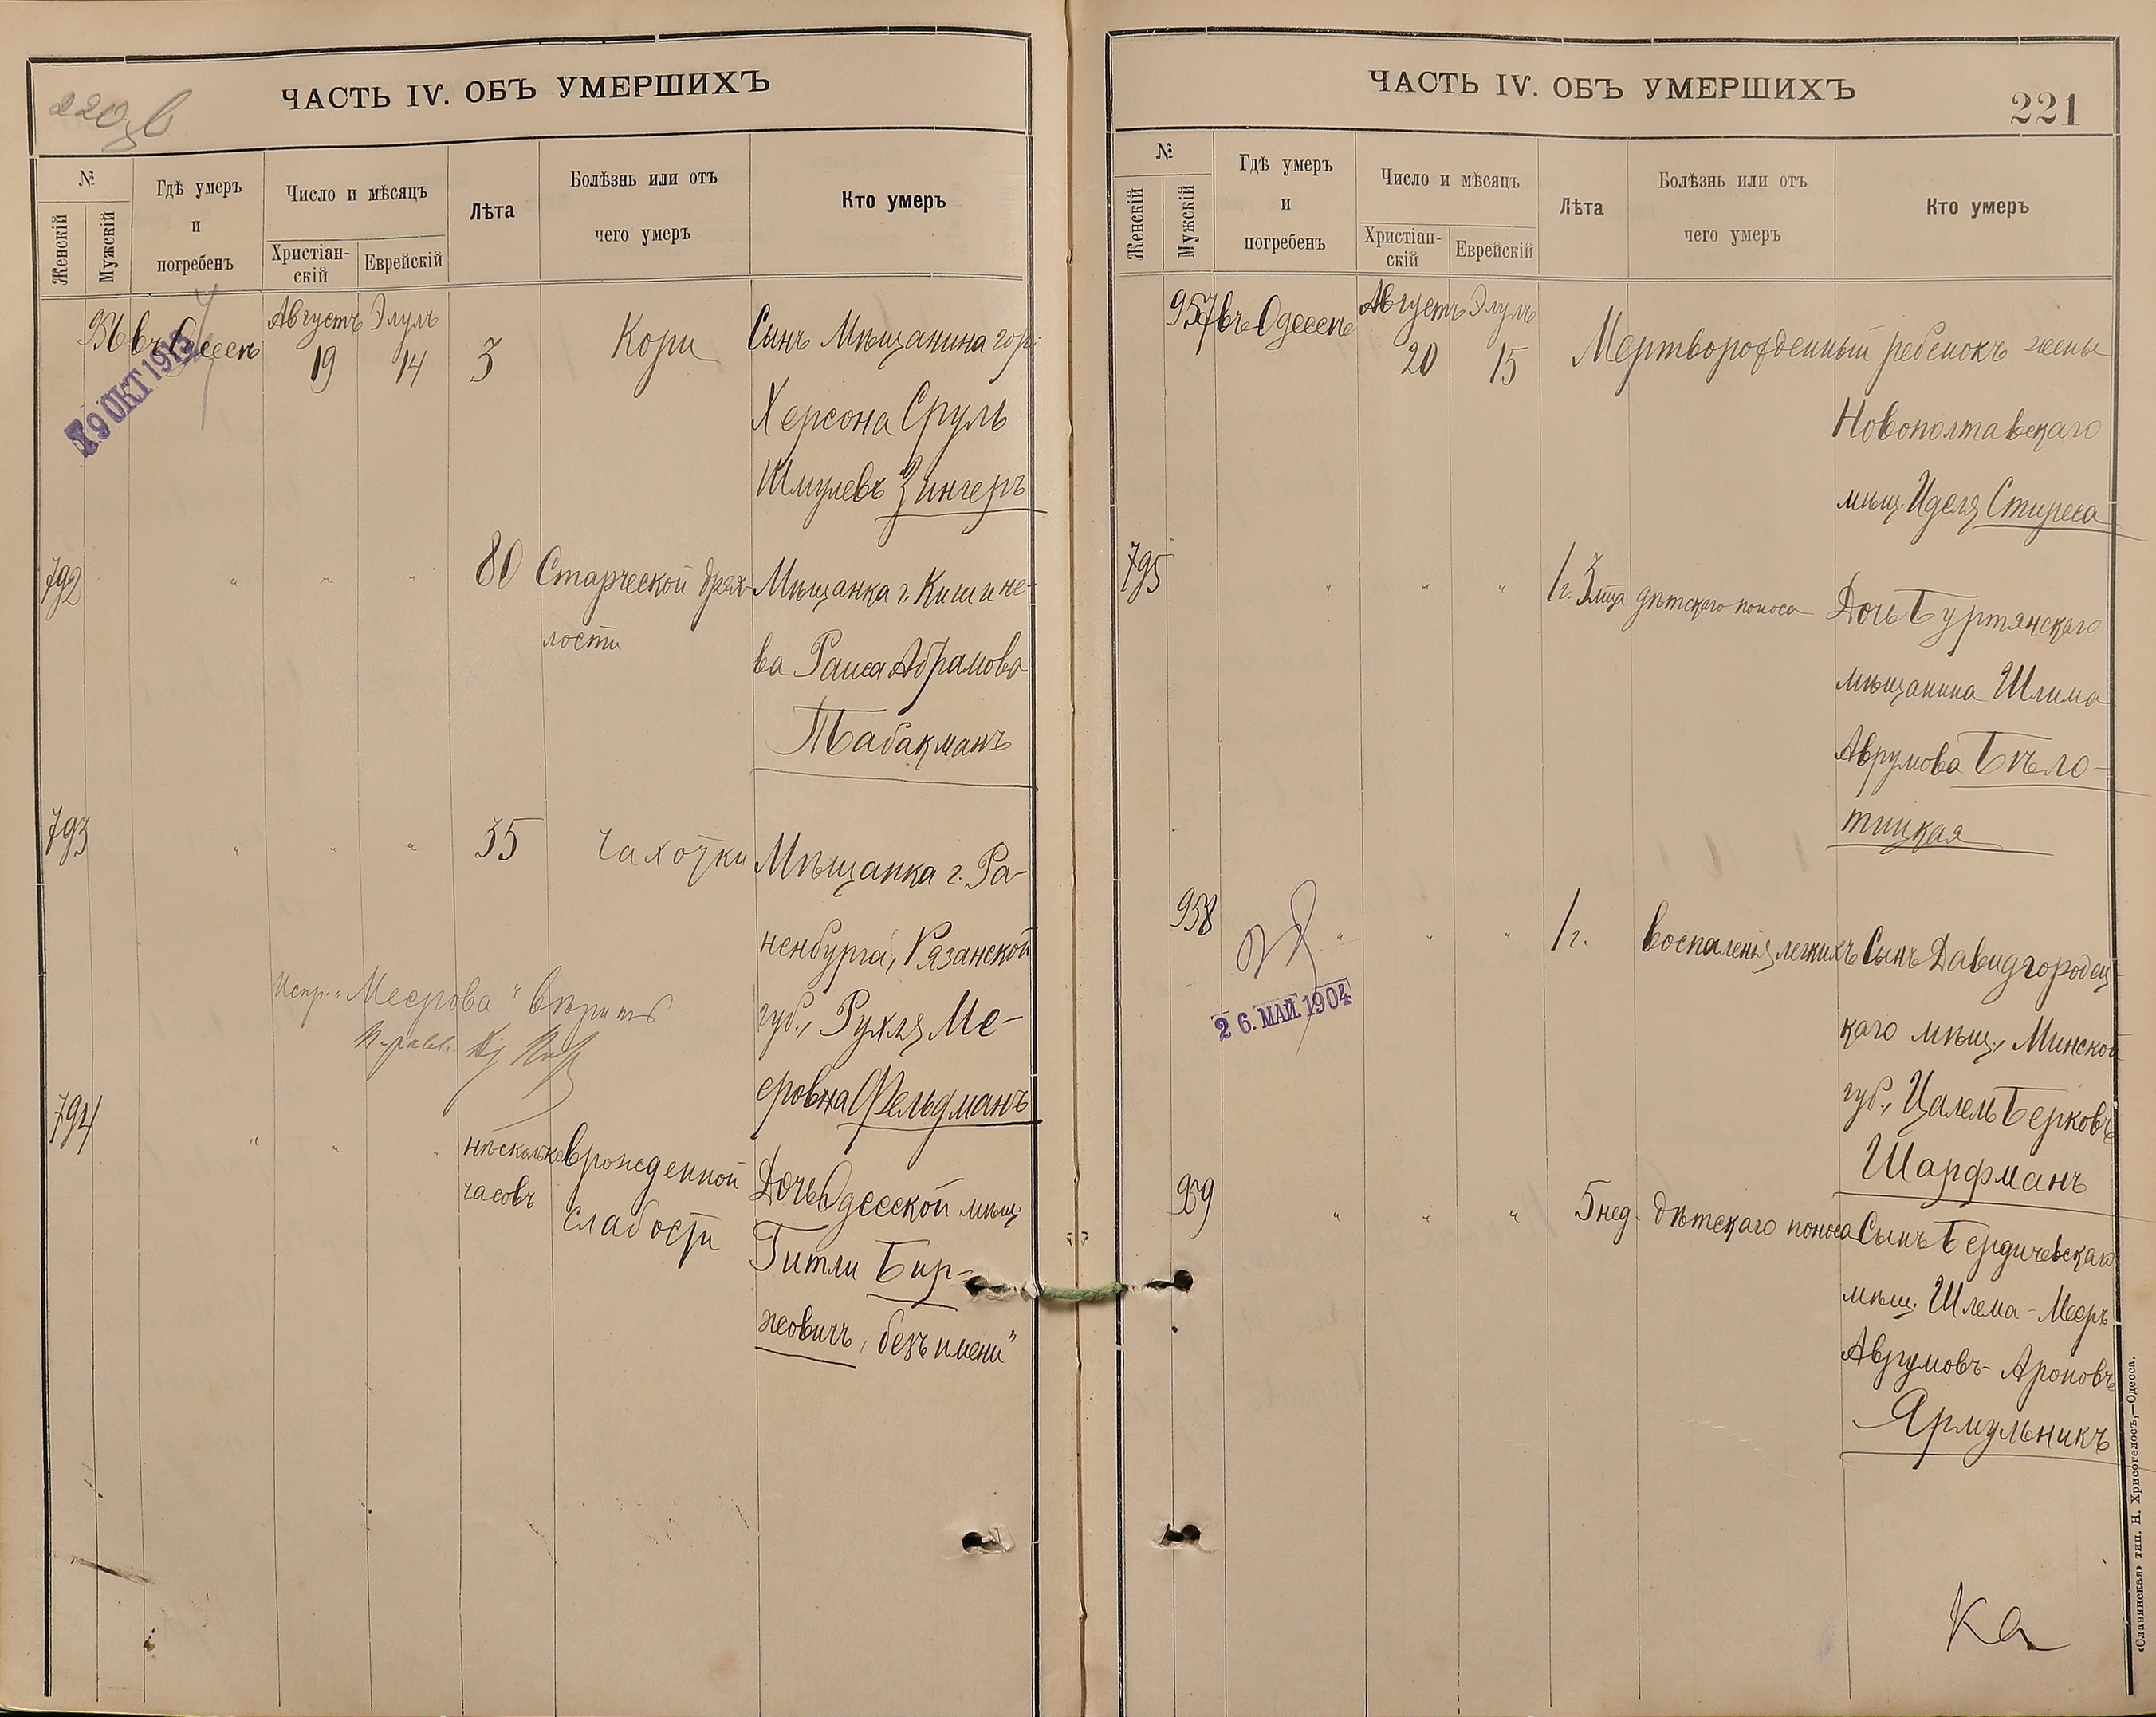 220 об
ЧАСТЬ IV. ОБЪ УМЕРШИХЪ
№
Женскій
Мужскій
Гдѣ умеръ
и
погребенъ
Число и мѣсяцъ
Христіан-
скій
Еврейскій
Лѣта
Болѣзнь или отъ
чего умеръ
Кто умеръ
956 въ Одессѣ Августъ 19 Элулъ 14 3 Кори Сынъ Мѣщанина гор.
Херсона Сруль
Шмулевъ Зингеръ
19 ОКТ 1913
792 " " " 80 Старческой дрях- Мѣщанка г. Кишине-
лости ва Раиса Абрамова
Табакманъ
793 " " " 35 Чахотки Мѣщанка г. Ра-
ненбурга, Рязанской
губ., Рухля Ме-
еровна Фельдманъ
Испр. "Меерова" вѣрить
794 " " " нѣсколько врожденной Дочь Одесской мѣщ.
часовъ слабости Гитли Бир-
жовичъ, безъ имени"
ЧАСТЬ IV. ОБЪ УМЕРШИХЪ
221
№
Женскій
Мужскій
Гдѣ умеръ
и
погребенъ
Число и мѣсяцъ
Христіан-
скій
Еврейскій
Лѣта
Болѣзнь или отъ
чего умеръ
Кто умеръ
957 въ Одессѣ Августъ 20 Элулъ 15 Мертворожденный ребенокъ жены
Новополтавскаго
мѣщ. Иделя Стиреса
795 " " " 1 г. 3 мца дѣтскаго поноса Дочь Буртянскаго
мѣщанина Шлима
Аврумова Бѣло-
тицкая
958 " " " 1 г. воспаленія легкихъ Сынъ Давидгородец-
каго мѣщ., Минской
губ., Цалель Берковъ
Шарфманъ
26. МАЙ 1904
959 " " " 5 нед. дѣтскаго поноса Сынъ Бердичевскаго
мѣщ. Шлема-Мееръ
Аврумовъ-Ароновъ
Ярмульникъ
Ка
«Славянская» тип. Н. Хрисогелосъ,—Одесса.